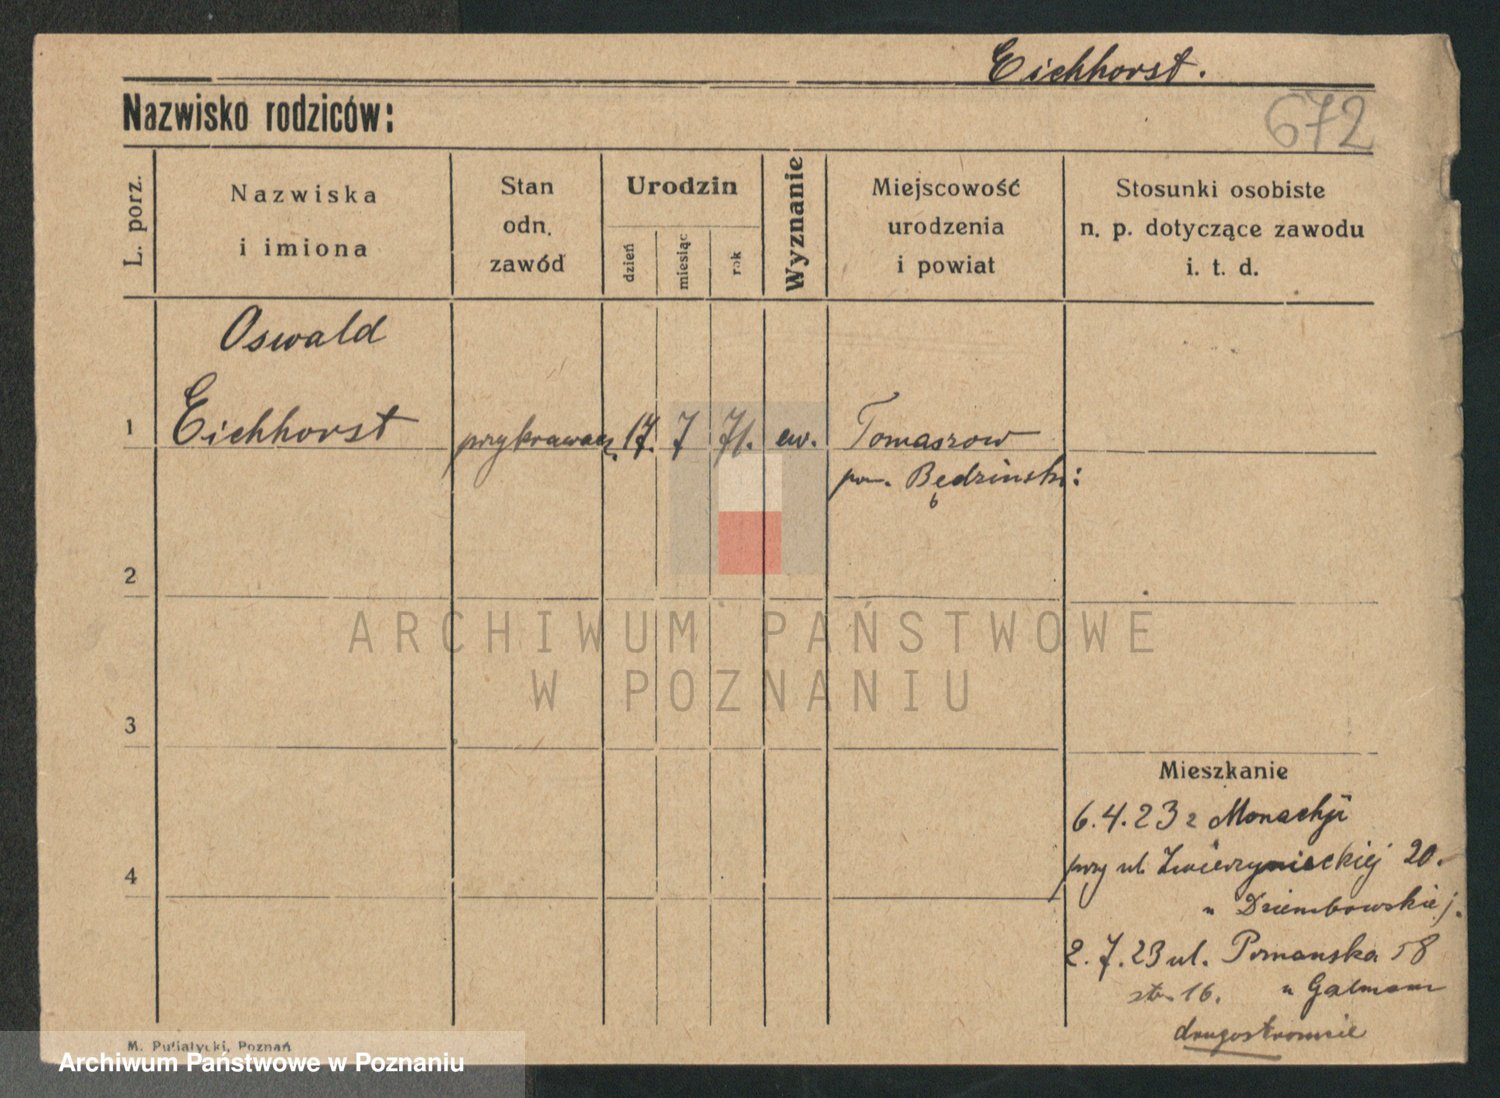 Eichhorst.
Nazwisko rodziców:
672
L. porz.
Nazwiska
i imiona
Stan
odn.
zawód
Urodzin
dzień
miesiąc
rok
Wyznanie
Miejscowość
urodzenia
i powiat
Stosunki osobiste
n. p. dotyczące zawodu
i. t. d.
Oswald
1 Eichhorst przykrawacz. 17. 7 71. ew. Tomaszow
pow. Będzinski
2
3
4
Mieszkanie
6.4.23 z Monachji
przy ul. Zwierzynieckiej 20.
u Dziembowskiej.
2.7.23 ul. Poznanska 58
16. u
drugostronnie
M. Putiatycki, Poznań
ARCHIWUM PAŃSTWOWE
W POZNANIU
Archiwum Państwowe w Poznaniu